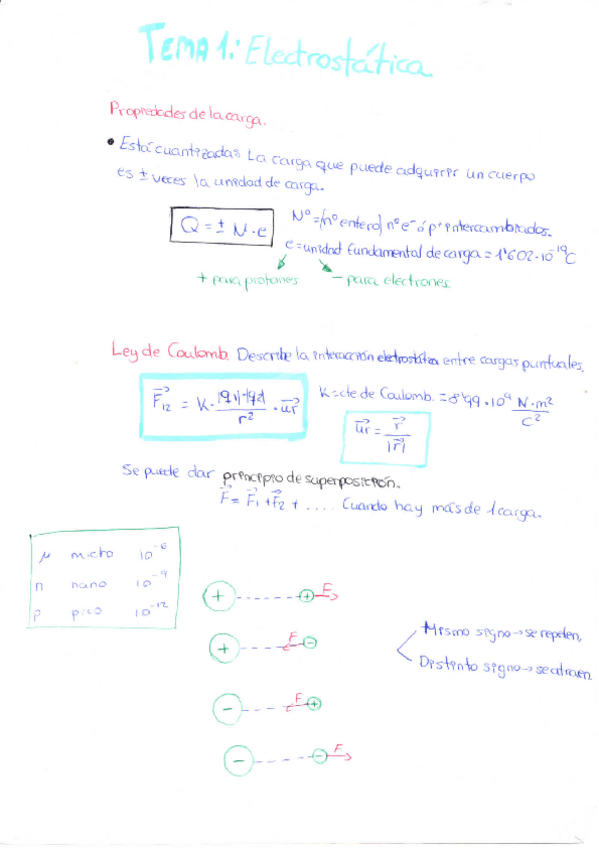 TEMA 1: Electrostática
Propiedades de la carga.
• Está cuantizada: La carga que puede adquirir un cuerpo
es ± veces la unidad de carga.
Q = ± N·e
Nº = (nº entero) nº e⁻ ó p⁺ intercambiados.
e = unidad fundamental de carga = 1'602·10⁻¹⁹C
+ para protones
- para electrones
Ley de Coulomb. Describe la interacción eletrostática entre cargas puntuales.
F⃗₁₂ = K · |q₁|·|q₂| / r² · u⃗r
K = cte de Coulomb. = 8'99 · 10⁹ N·m² / C²
u⃗r = r⃗ / |r⃗|
Se puede dar principio de superposición.
F⃗ = F⃗₁ + F⃗₂ + .... Cuando hay más de 1 carga.
μ micro 10⁻⁶
n nano 10⁻⁹
p pico 10⁻¹²
+ + F
+ F -
- F +
- - F
Mismo signo → se repelen,
Distinto signo → se atraen